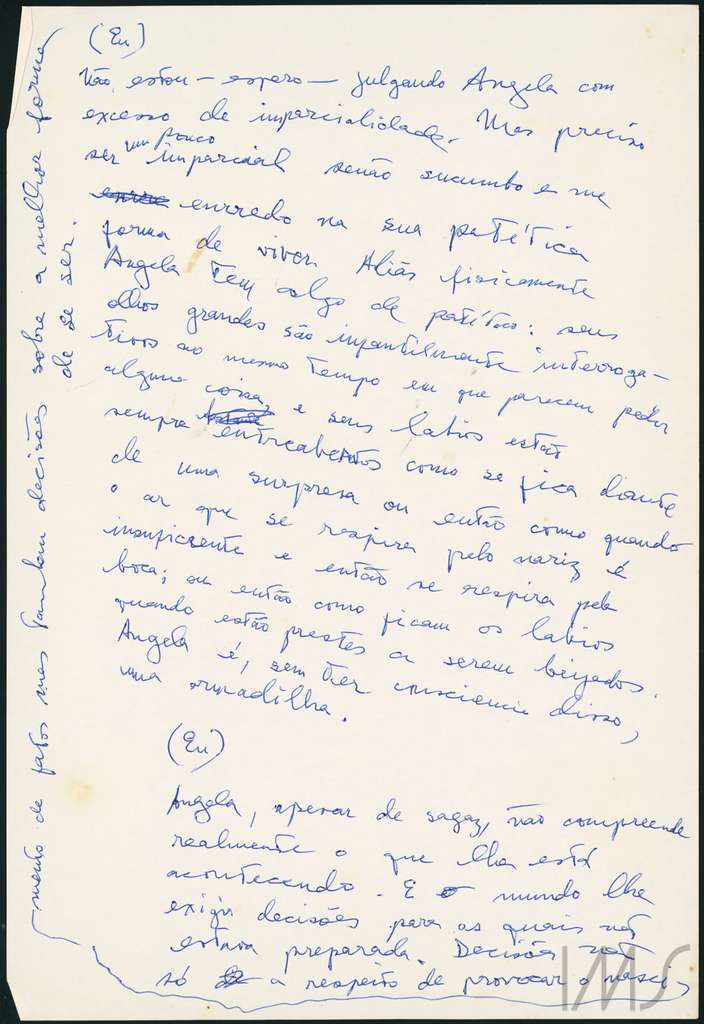 (Eu)
Não estou — espero — julgando Angela com
excesso de imparcialidade. Mas preciso
ser um pouco imparcial senão sucumbo e me
enredo na sua patética
forma de viver. Aliás fisicamente
Angela tem algo de patético: seus
olhos grandes são infantilmente interroga-
tivos ao mesmo tempo em que parecem pedir
alguma coisa, e seus labios estão
sempre entreabertos como se fica diante
de uma surpresa ou então como quando
o ar que se respira pelo nariz é
insuficiente e então se respira pela
boca; ou então como ficam os labios
quando estão prestes a serem beijados.
Angela é, sem ter consciencia disso,
uma armadilha.
(Eu)
Angela, apesar de sagaz, não compreende
realmente o que lhe está
acontecendo. E o mundo lhe
exigiu decisões para as quais não
estava preparada. Decisões não
só a respeito de provocar o nasci,
mento de fatos mas tambem decisões sobre a melhor forma
de se ser.
IMS